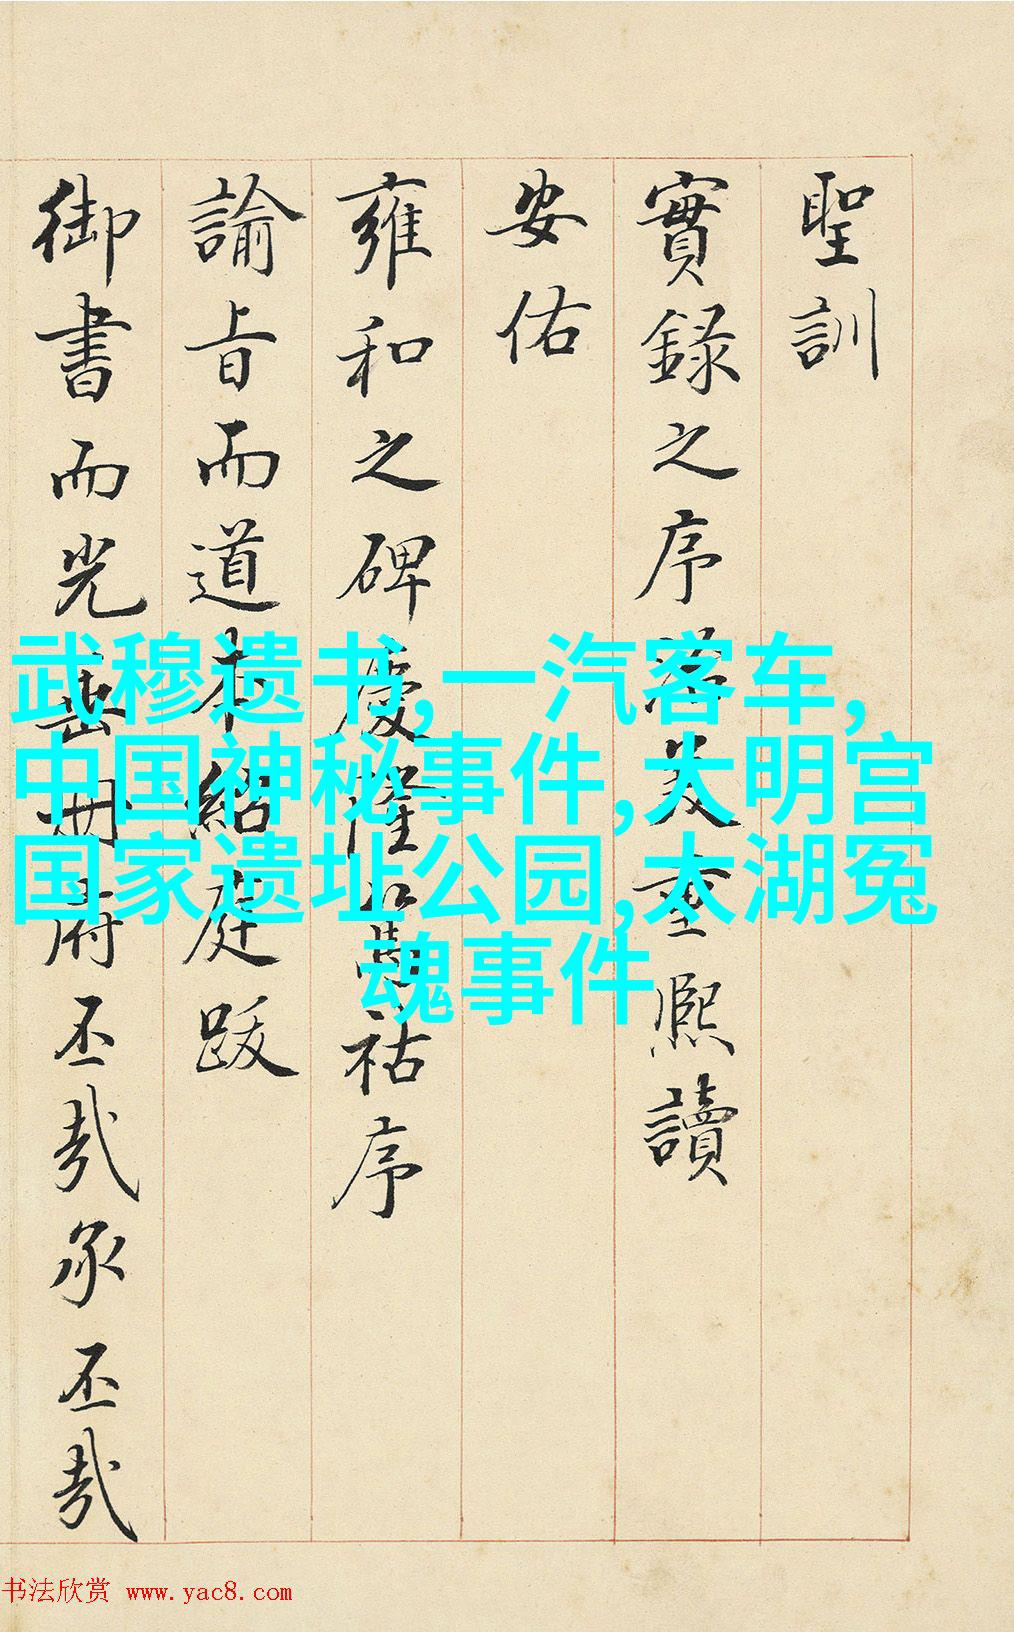 聖訓
實錄之序美重熙讀
安佑
雍和之碑慶隆祜序
諭旨而道本紹庭跋
御書而光垂冊府丕哉承丕哉
武穆遗书,一汽客车,
中国神秘事件,大明宫
国家遗址公园,太湖冤
魂事件
书法欣赏 www.yac8.com